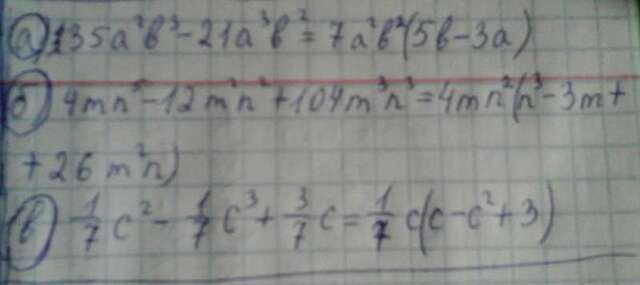 а) 35a²b³ - 21a³b² = 7a²b²(5b - 3a)
б) 4mn⁵ - 12m²n² + 104m³n³ = 4mn²(n³ - 3m +
+ 26m²n)
в) 1/7 c² - 1/7 c³ + 3/7 c = 1/7 c(c - c² + 3)